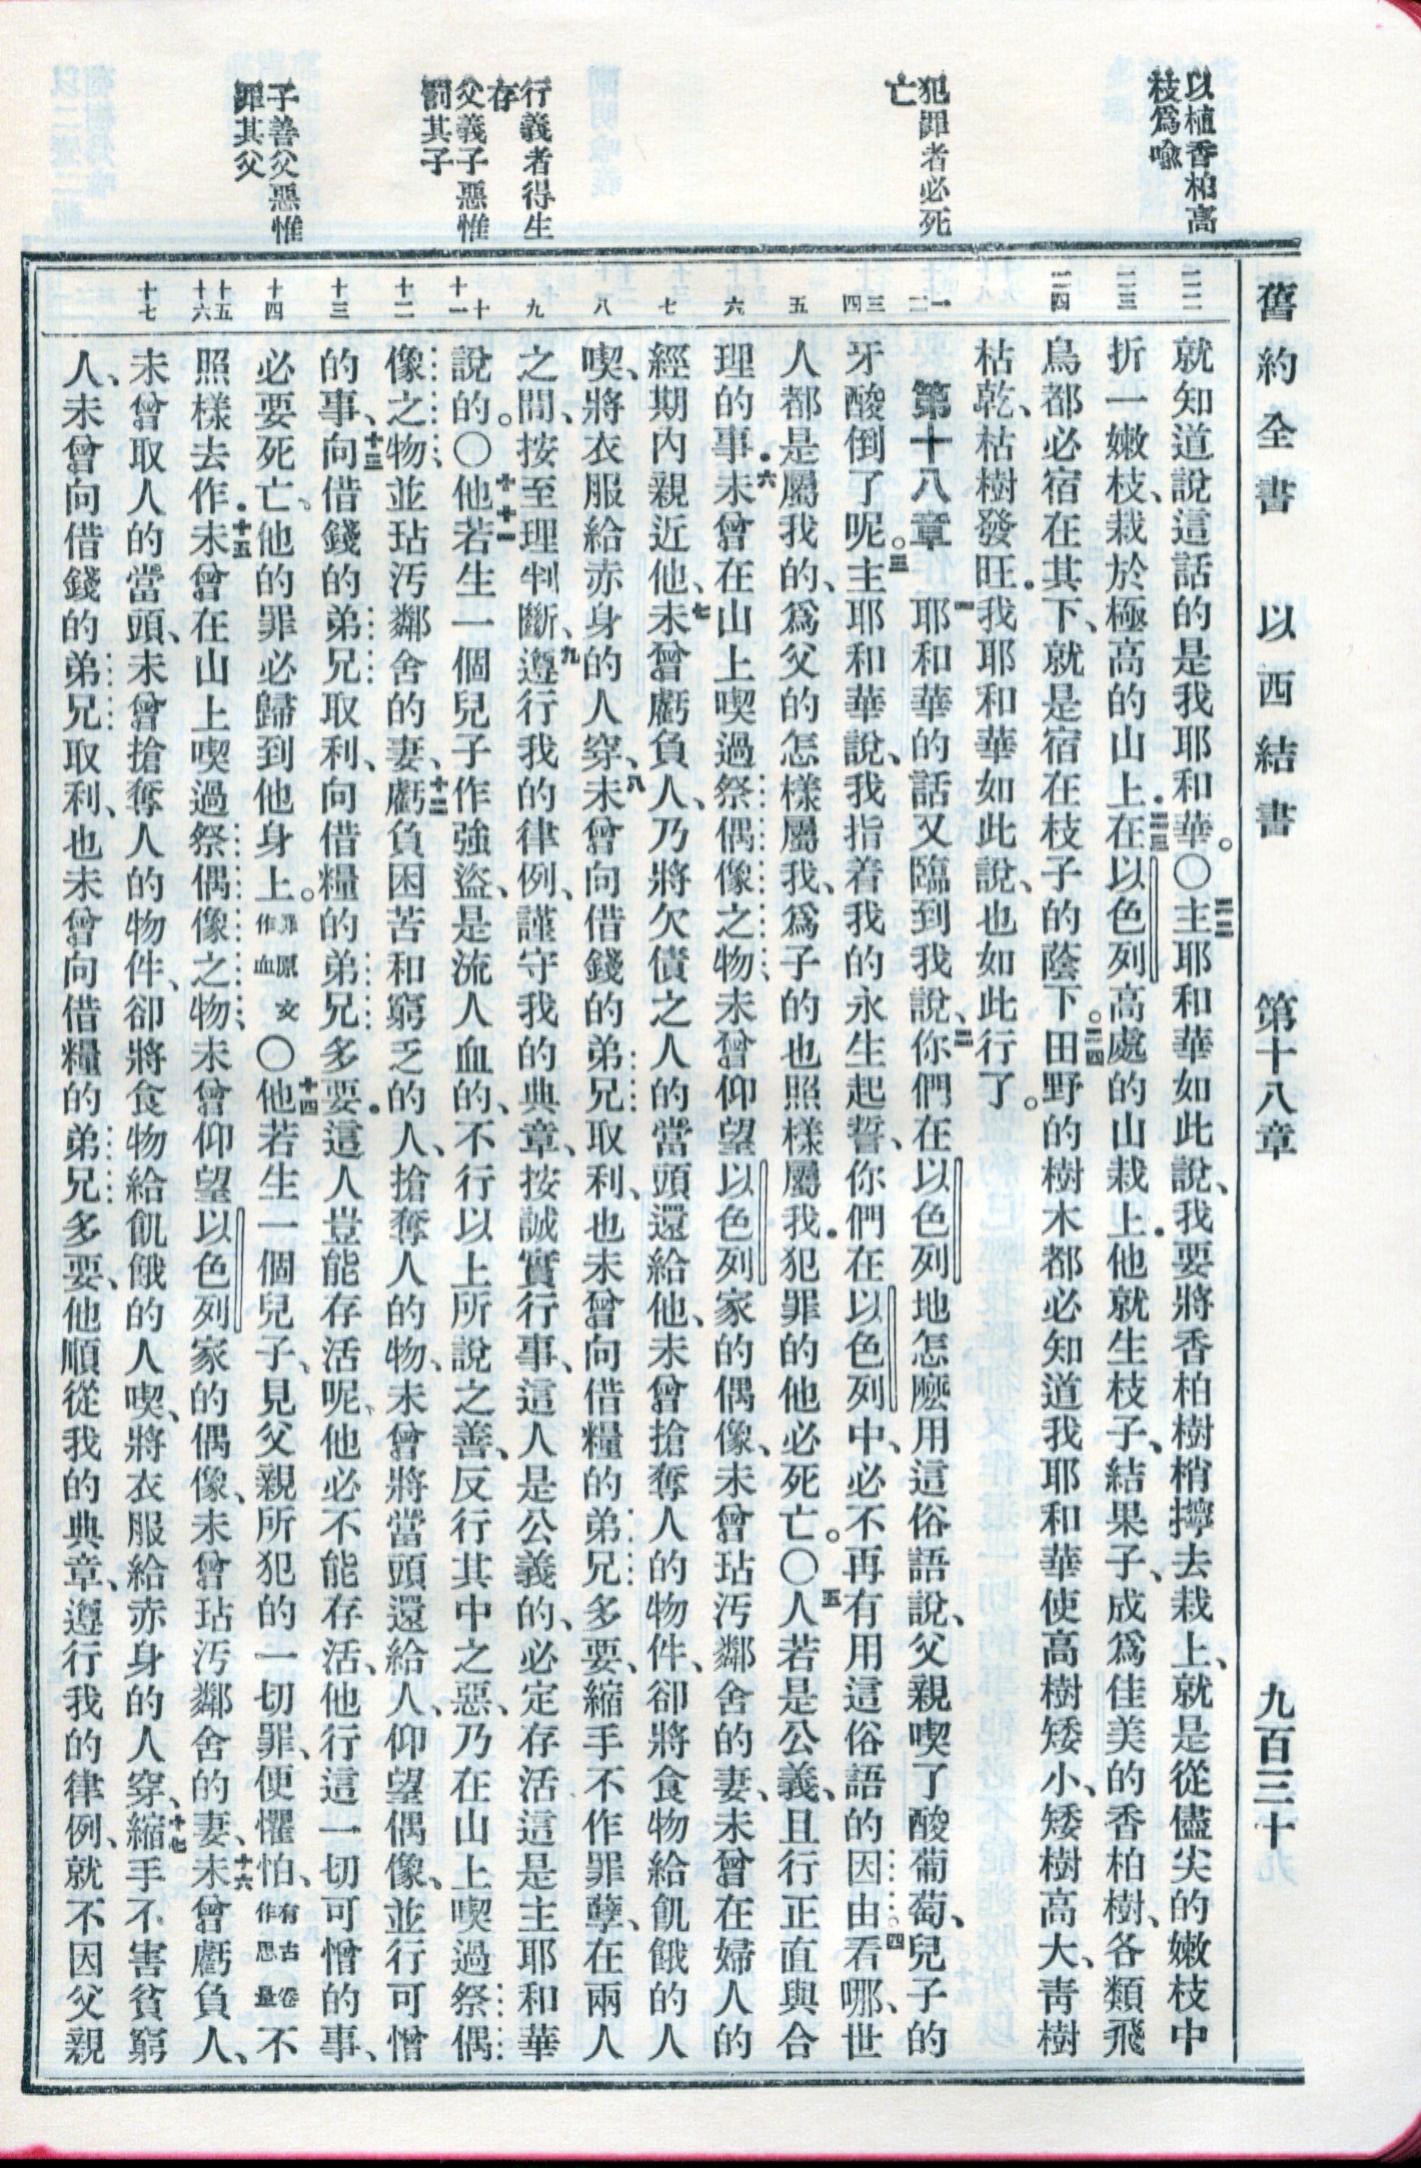 舊約全書 以西結書 第十八章 九百三十九
以植香柏高
枝爲喩
犯罪者必死
亡
行義者得生
存
父義子惡惟
罰其子
子善父惡惟
罪其父
二二
二三
二四
一
二
三
四
五
六
七
八
九
十
十一
十二
十三
十四
十五
十六
十七
就知道說這話的是我耶和華。〇二二主耶和華如此說、我要將香柏樹梢擰去栽上、就是從儘尖的嫩枝中
折一嫩枝、栽於極高的山上．二三在以色列高處的山栽上．他就生枝子、結果子、成爲佳美的香柏樹、各類飛
鳥都必宿在其下、就是宿在枝子的蔭下。二四田野的樹木都必知道我耶和華使高樹矮小、矮樹高大、靑樹
枯乾、枯樹發旺．我耶和華如此說、也如此行了。
第十八章 一耶和華的話又臨到我說、二你們在以色列地怎麽用這俗語說、父親喫了酸葡萄、兒子的
牙酸倒了呢。三主耶和華說、我指着我的永生起誓、你們在以色列中、必不再有用這俗語的因由。四看哪、世
人都是屬我的、爲父的怎樣屬我、爲子的也照樣屬我．犯罪的他必死亡。〇五人若是公義、且行正直與合
理的事．六未曾在山上喫過祭偶像之物、未曾仰望以色列家的偶像、未曾玷汚鄰舍的妻、未曾在婦人的
經期內親近他、七未曾虧負人、乃將欠債之人的當頭還給他、未曾搶奪人的物件、卻將食物給飢餓的人
喫、將衣服給赤身的人穿、八未曾向借錢的弟兄取利、也未曾向借糧的弟兄多要、縮手不作罪孽、在兩人
之間、按至理判斷、九遵行我的律例、謹守我的典章、按誠實行事、這人是公義的、必定存活這是主耶和華
說的。〇十十一他若生一個兒子作強盜、是流人血的、不行以上所說之善、反行其中之惡、乃在山上喫過祭偶
像之物、並玷汚鄰舍的妻、十二虧負困苦和窮乏的人、搶奪人的物、未曾將當頭還給人、仰望偶像、並行可憎
的事、十三向借錢的弟兄取利、向借糧的弟兄多要．這人豈能存活呢、他必不能存活、他行這一切可憎的事、
必要死亡、他的罪必歸到他身上。罪原文作血〇十四他若生一個兒子、見父親所犯的一切罪、便懼怕、有古卷作思量不
照樣去作．十五未曾在山上喫過祭偶像之物、未曾仰望以色列家的偶像、未曾玷汚鄰舍的妻、十六未曾虧負人、
未曾取人的當頭、未曾搶奪人的物件、卻將食物給飢餓的人喫、將衣服給赤身的人穿、十七縮手不害貧窮
人、未曾向借錢的弟兄取利、也未曾向借糧的弟兄多要、他順從我的典章、遵行我的律例、就不因父親